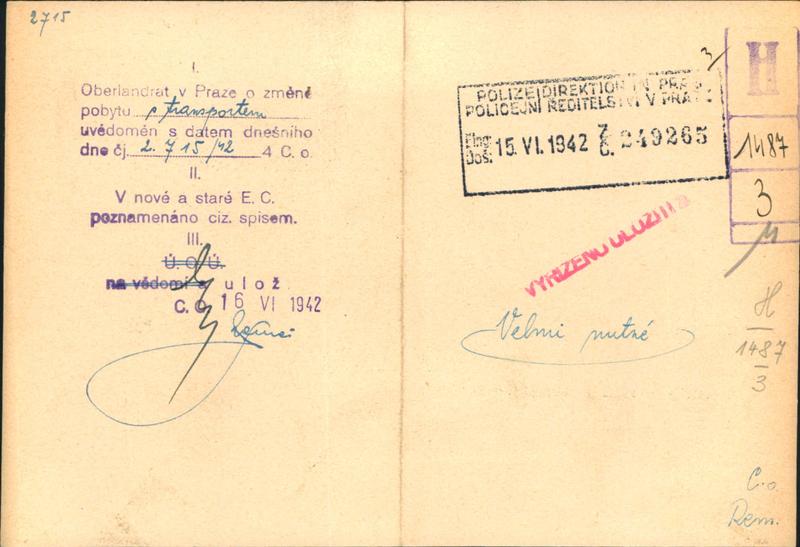 2715
I.
Oberlandrat v Praze o změně
pobytu s transportem
uvědoměn s datem dnešního
dne čj. 2.715/42 4 C. o.
II.
V nové a staré E. C.
poznamenáno ciz. spisem.
III.
Ú. O. Ú.
na vědomí a ulož
C. O. 16 VI 1942
3
POLIZEIDIREKTION IN PRAG
POLICEJNÍ ŘEDITELSTVÍ V PRAZE
Eing.
Doš. 15. VI. 1942 Z
Č. 249265
H
1487
3
VYŘÍZENO ULOŽITI
Velmi nutné
H
1487
3
C. o.
Rem.